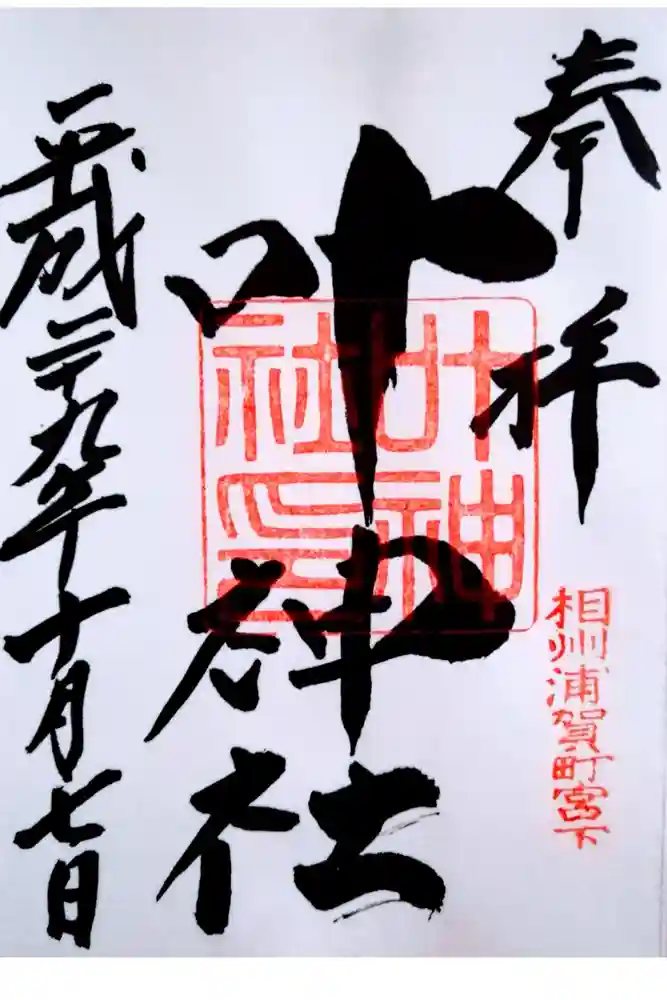 奉拝
相州浦賀町宮下
叶神社
叶神社印
平成二十九年十月七日